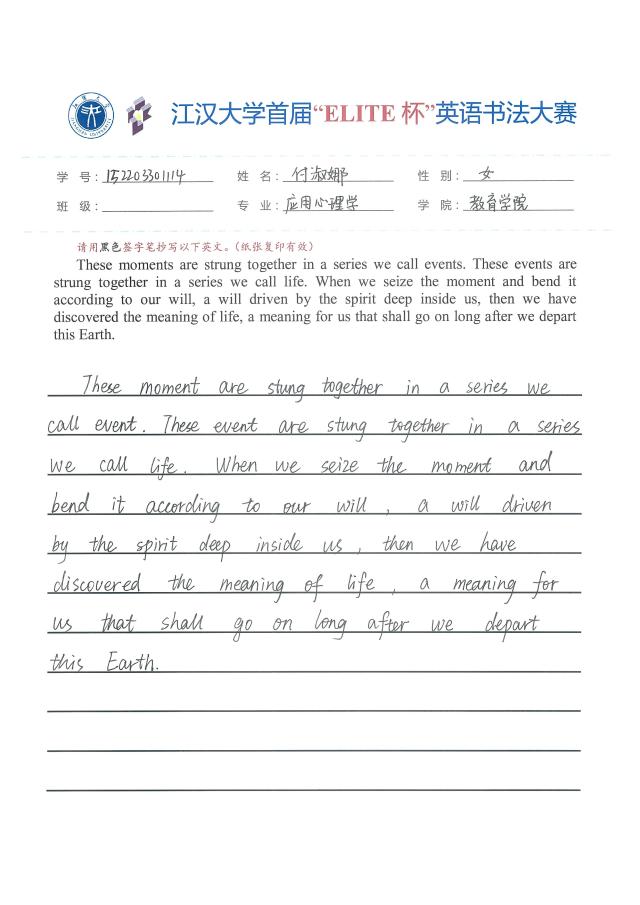 江汉大学首届“ELITE 杯”英语书法大赛
学 号：152203301114 姓 名：付淑娜 性 别：女
班 级： 专 业：应用心理学 学 院：教育学院
请用黑色签字笔抄写以下英文。（纸张复印有效）
These moments are strung together in a series we call events. These events are
strung together in a series we call life. When we seize the moment and bend it
according to our will, a will driven by the spirit deep inside us, then we have
discovered the meaning of life, a meaning for us that shall go on long after we depart
this Earth.
These moment are stung together in a series we
call event. These event are stung together in a series
we call life. When we seize the moment and
bend it according to our will, a will driven
by the spirit deep inside us, then we have
discovered the meaning of life, a meaning for
us that shall go on long after we depart
this Earth.